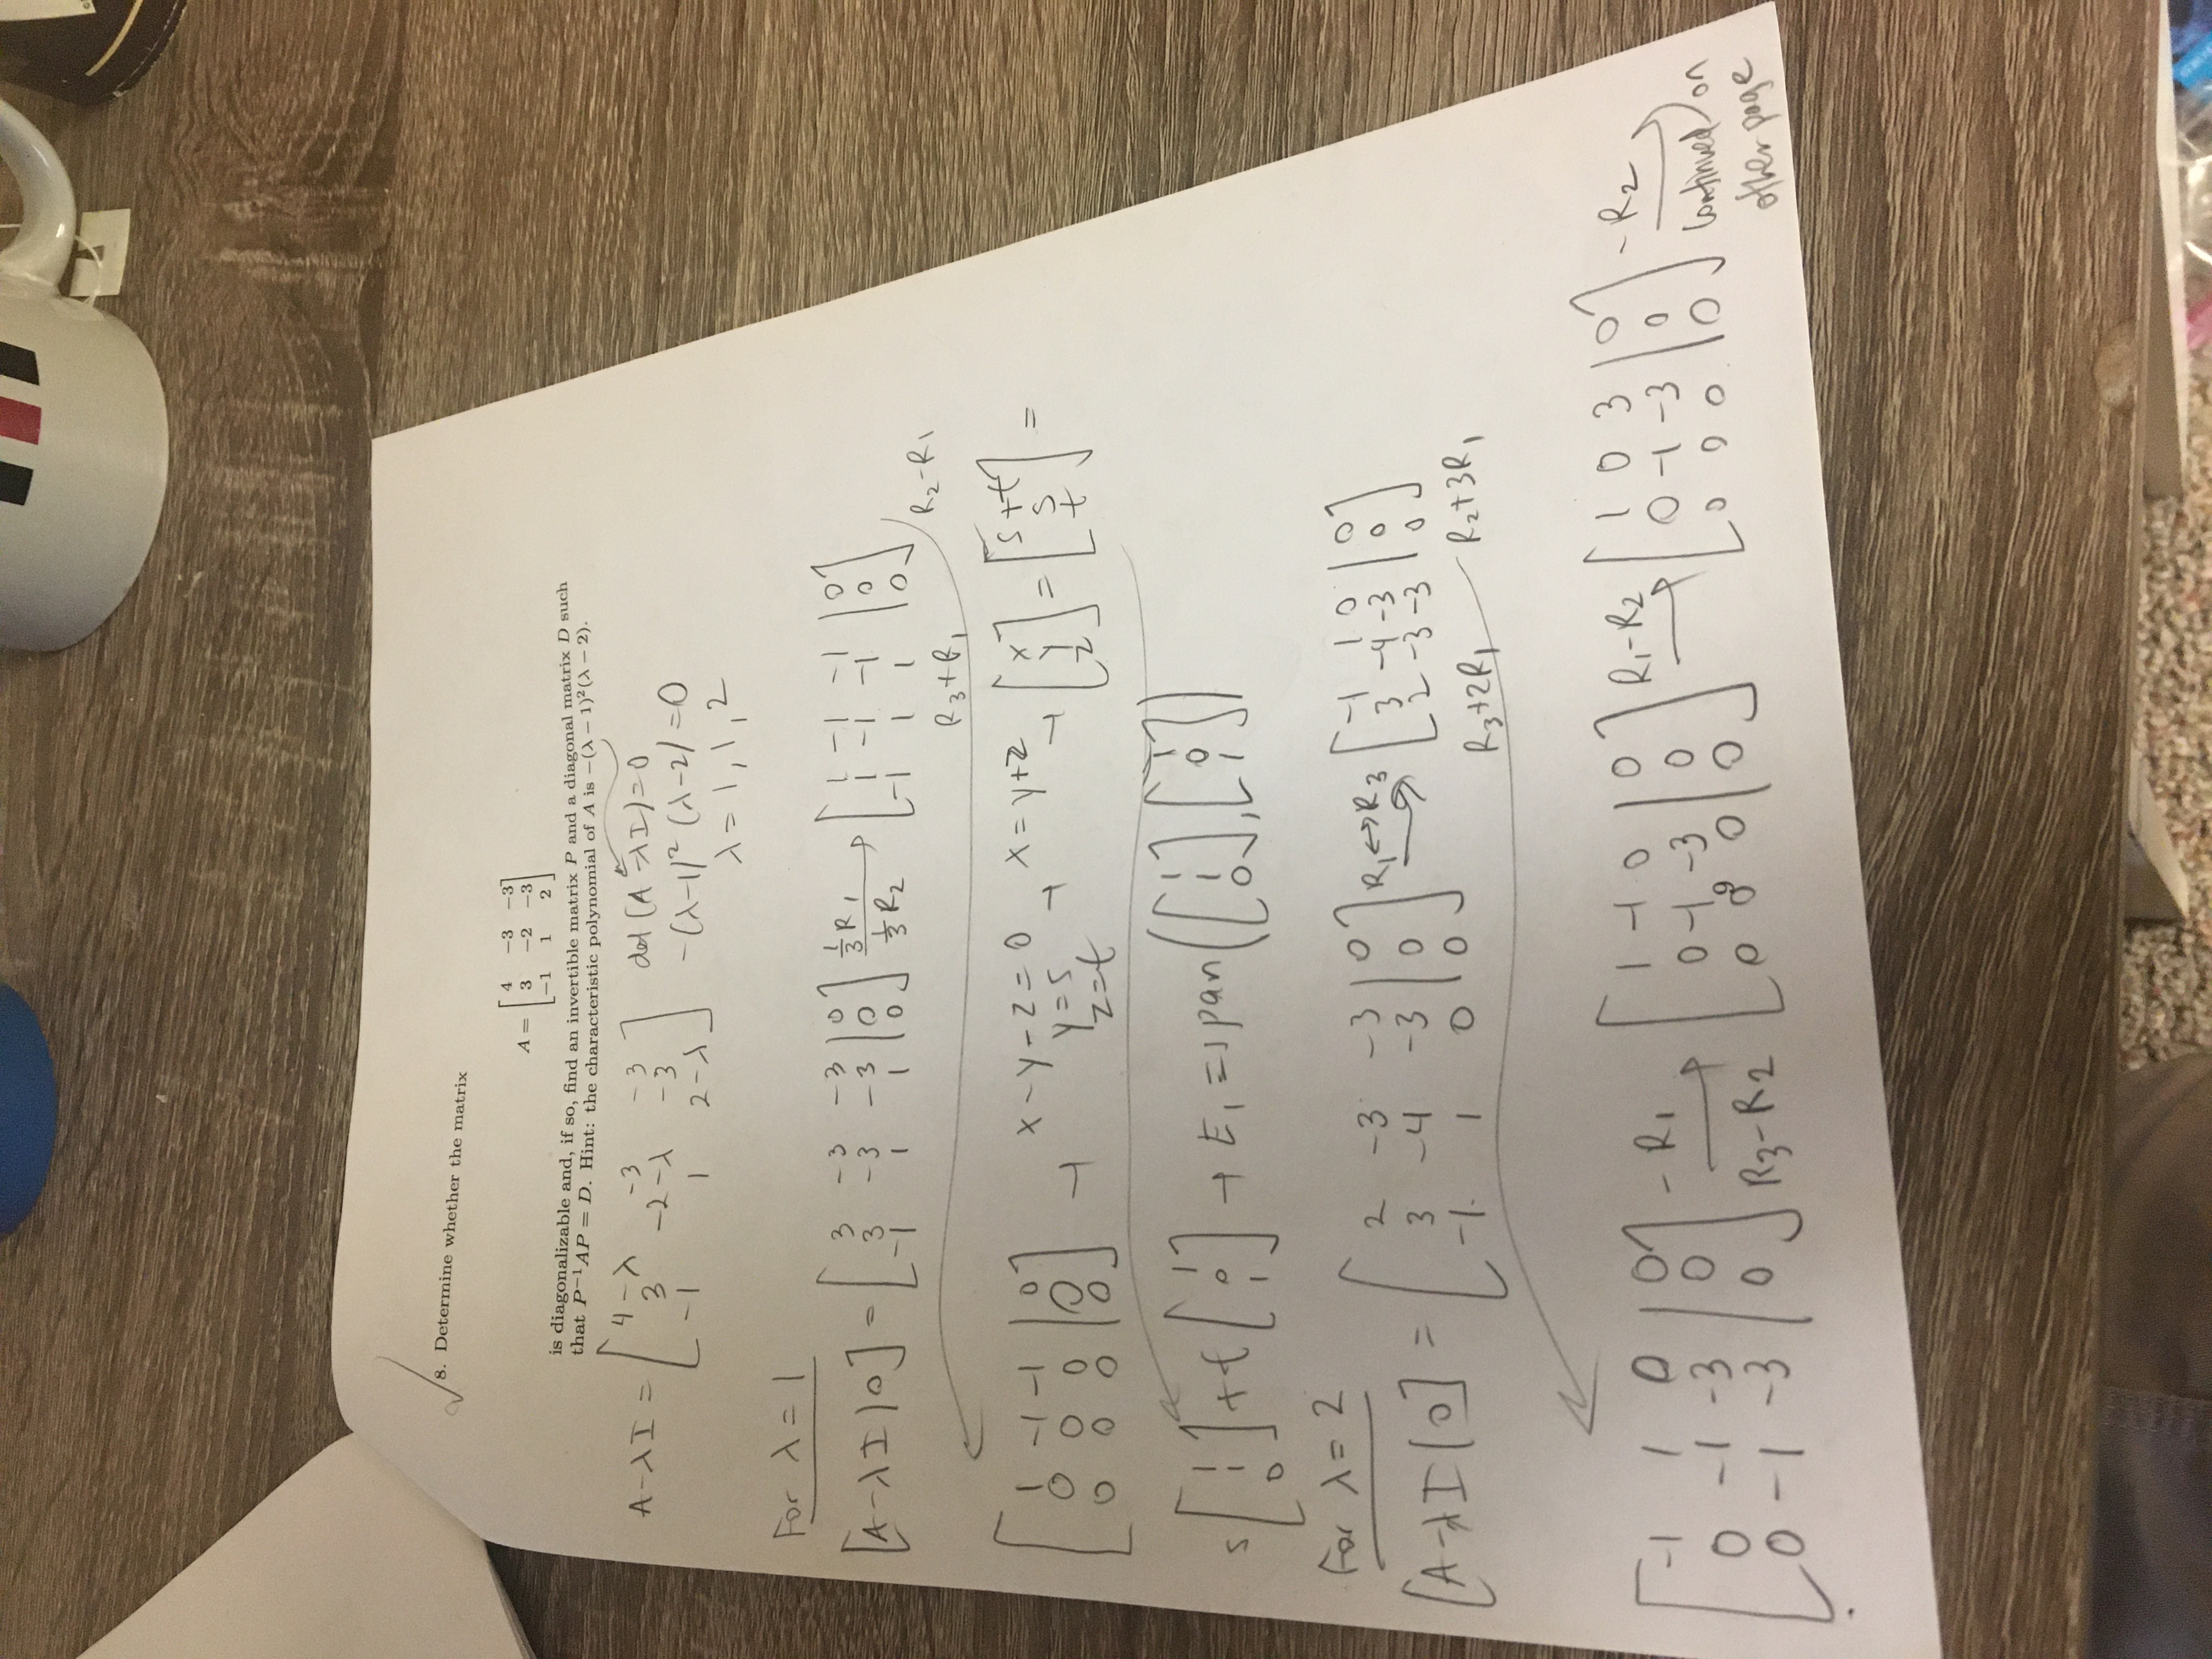 8. Determine whether the matrix
A = [ 4 −3 −3
3 −2 −3
−1 1 2 ]
is diagonalizable and, if so, find an invertible matrix P and a diagonal matrix D such
that P⁻¹AP = D. Hint: the characteristic polynomial of A is −(λ − 1)²(λ − 2).
A-λI = [ 4-λ -3 -3
3 -2-λ -3
-1 1 2-λ ]
det (A-λI)=0
-(λ-1)² (λ-2)=0
λ = 1, 1, 2
For λ = 1
[A-λI|0] = [ 3 -3 -3 | 0
3 -3 -3 | 0
-1 1 1 | 0 ]
1/3 R₁
1/3 R₂
→ [ 1 -1 -1 | 0
1 -1 -1 | 0
-1 1 1 | 0 ]
R₃+R₁ R₂-R₁
[ 1 -1 -1 | 0
0 0 0 | 0
0 0 0 | 0 ]
→ x-y-z=0
y=s
z=t
→ x=y+z → [ x
y
z ] = [ s+t
s
t ] =
s[ 1
1
0 ] + t[ 1
0
1 ] → E₁ = span([ 1
1
0 ], [ 1
0
1 ])
For λ=2
[A-λI|0] = [ 2 -3 -3 | 0
3 -4 -3 | 0
-1 1 0 | 0 ]
R₁↔R₃
→ [ -1 1 0 | 0
3 -4 -3 | 0
2 -3 -3 | 0 ]
R₃+2R₁ R₂+3R₁
[ -1 1 0 | 0
0 -1 -3 | 0
0 -1 -3 | 0 ]
-R₁
→
R₃-R₂
[ 1 -1 0 | 0
0 -1 -3 | 0
0 0 0 | 0 ]
R₁-R₂
→ [ 1 0 3 | 0
0 -1 -3 | 0
0 0 0 | 0 ]
-R₂
→
continued on
other page